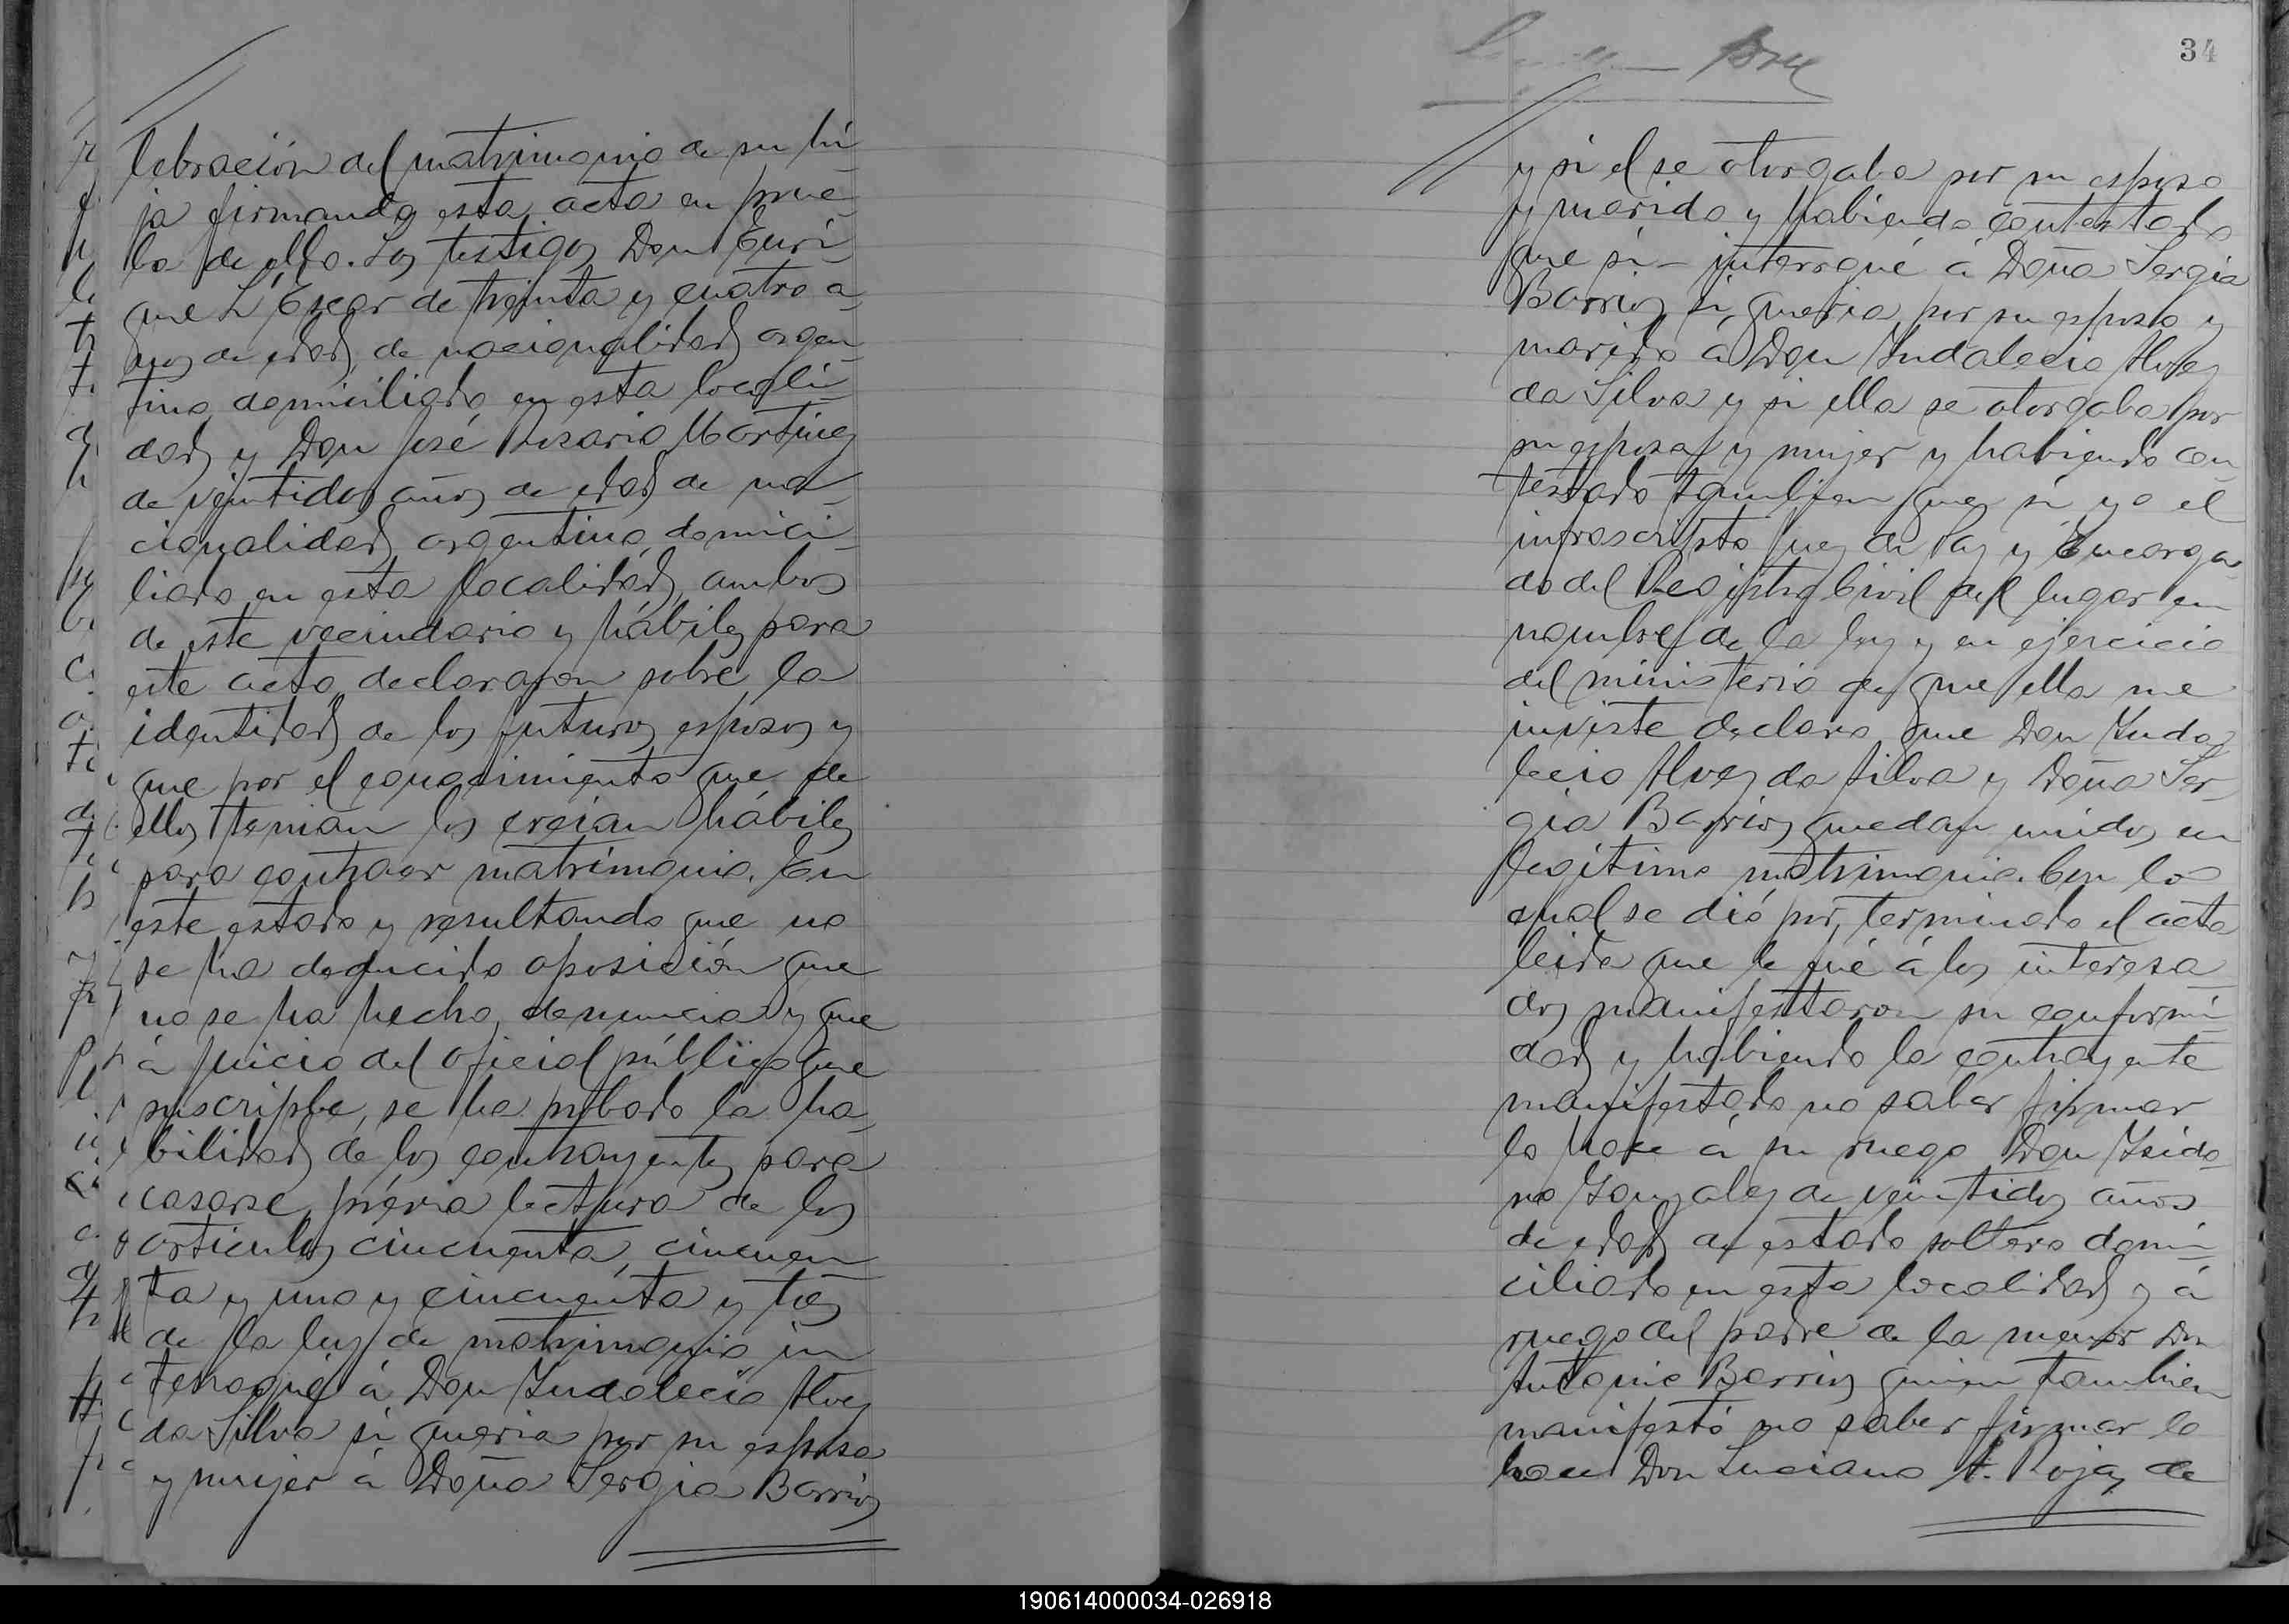 lebración del matrimonio de su hi
ja firmando esta acta en prue-
ba de ello. Los testigos Don Enri-
que L'Escar de treinta y cuatro a-
ños de edad, de nacionalidad argen-
tino domiciliado en esta locali-
dad y Don José Rosario Martinez
de veintidos años de edad de na-
cionalidad argentino, domici-
liado en esta localidad, ambos
de este vecindario y hábiles para
este acto declararon sobre la
identidad de los futuros esposos y
que por el conocimiento que de
ellos tenian los creian hábiles
para contraer matrimonio. En
este estado y resultando que no
se ha deducido oposición que
no se ha hecho denuncia y que
á juicio del oficial público que
suscripbe, se ha probado la ha-
bilidad de los contrayentes para
casarse, prévia lectura de los
articulos cincuenta, cincuen
ta y uno y cincuenta y tres
de la ley de matrimonio, in
terrogué á Don Indalecio Alves
da Silva si queria por su esposa
y mujer á Doña Sergia Barrios
34
y si el se otorgaba por su esposo
y marido y habiendo contestado
que si – interrogué á Doña Sergia
Barrios si queria por su esposo y
marido á Don Indalecio Alves
da Silva y si ella se otorgaba por
su esposa y mujer y habiendo con
testado tambien que si yo el
infrascripto Juez de Paz y Encarga-
do del Registro Civil del lugar en
nombre de la ley y en ejercicio
del ministerio de que ella me
inviste declaro que Don Inda-
lecio Alves da Silva y Doña Ser-
gia Barrios quedan unidos en
legítimo matrimonio. Con lo
cual se dió por terminado el acto
leida que le fué á los interesa-
dos manifestaron su conformi-
dad y habiendo la contrayente
manifestado no saber firmar
lo hace á su ruego Don Isido-
ro Gonzalez de veintidos años
de edad de estado soltero domi-
ciliado en esta localidad y á
ruego del padre de la menor Don
Antonio Barrios quien tambien
manifestó no saber firmar lo
hace Don Luciano A. Rojas de
190614000034-026918